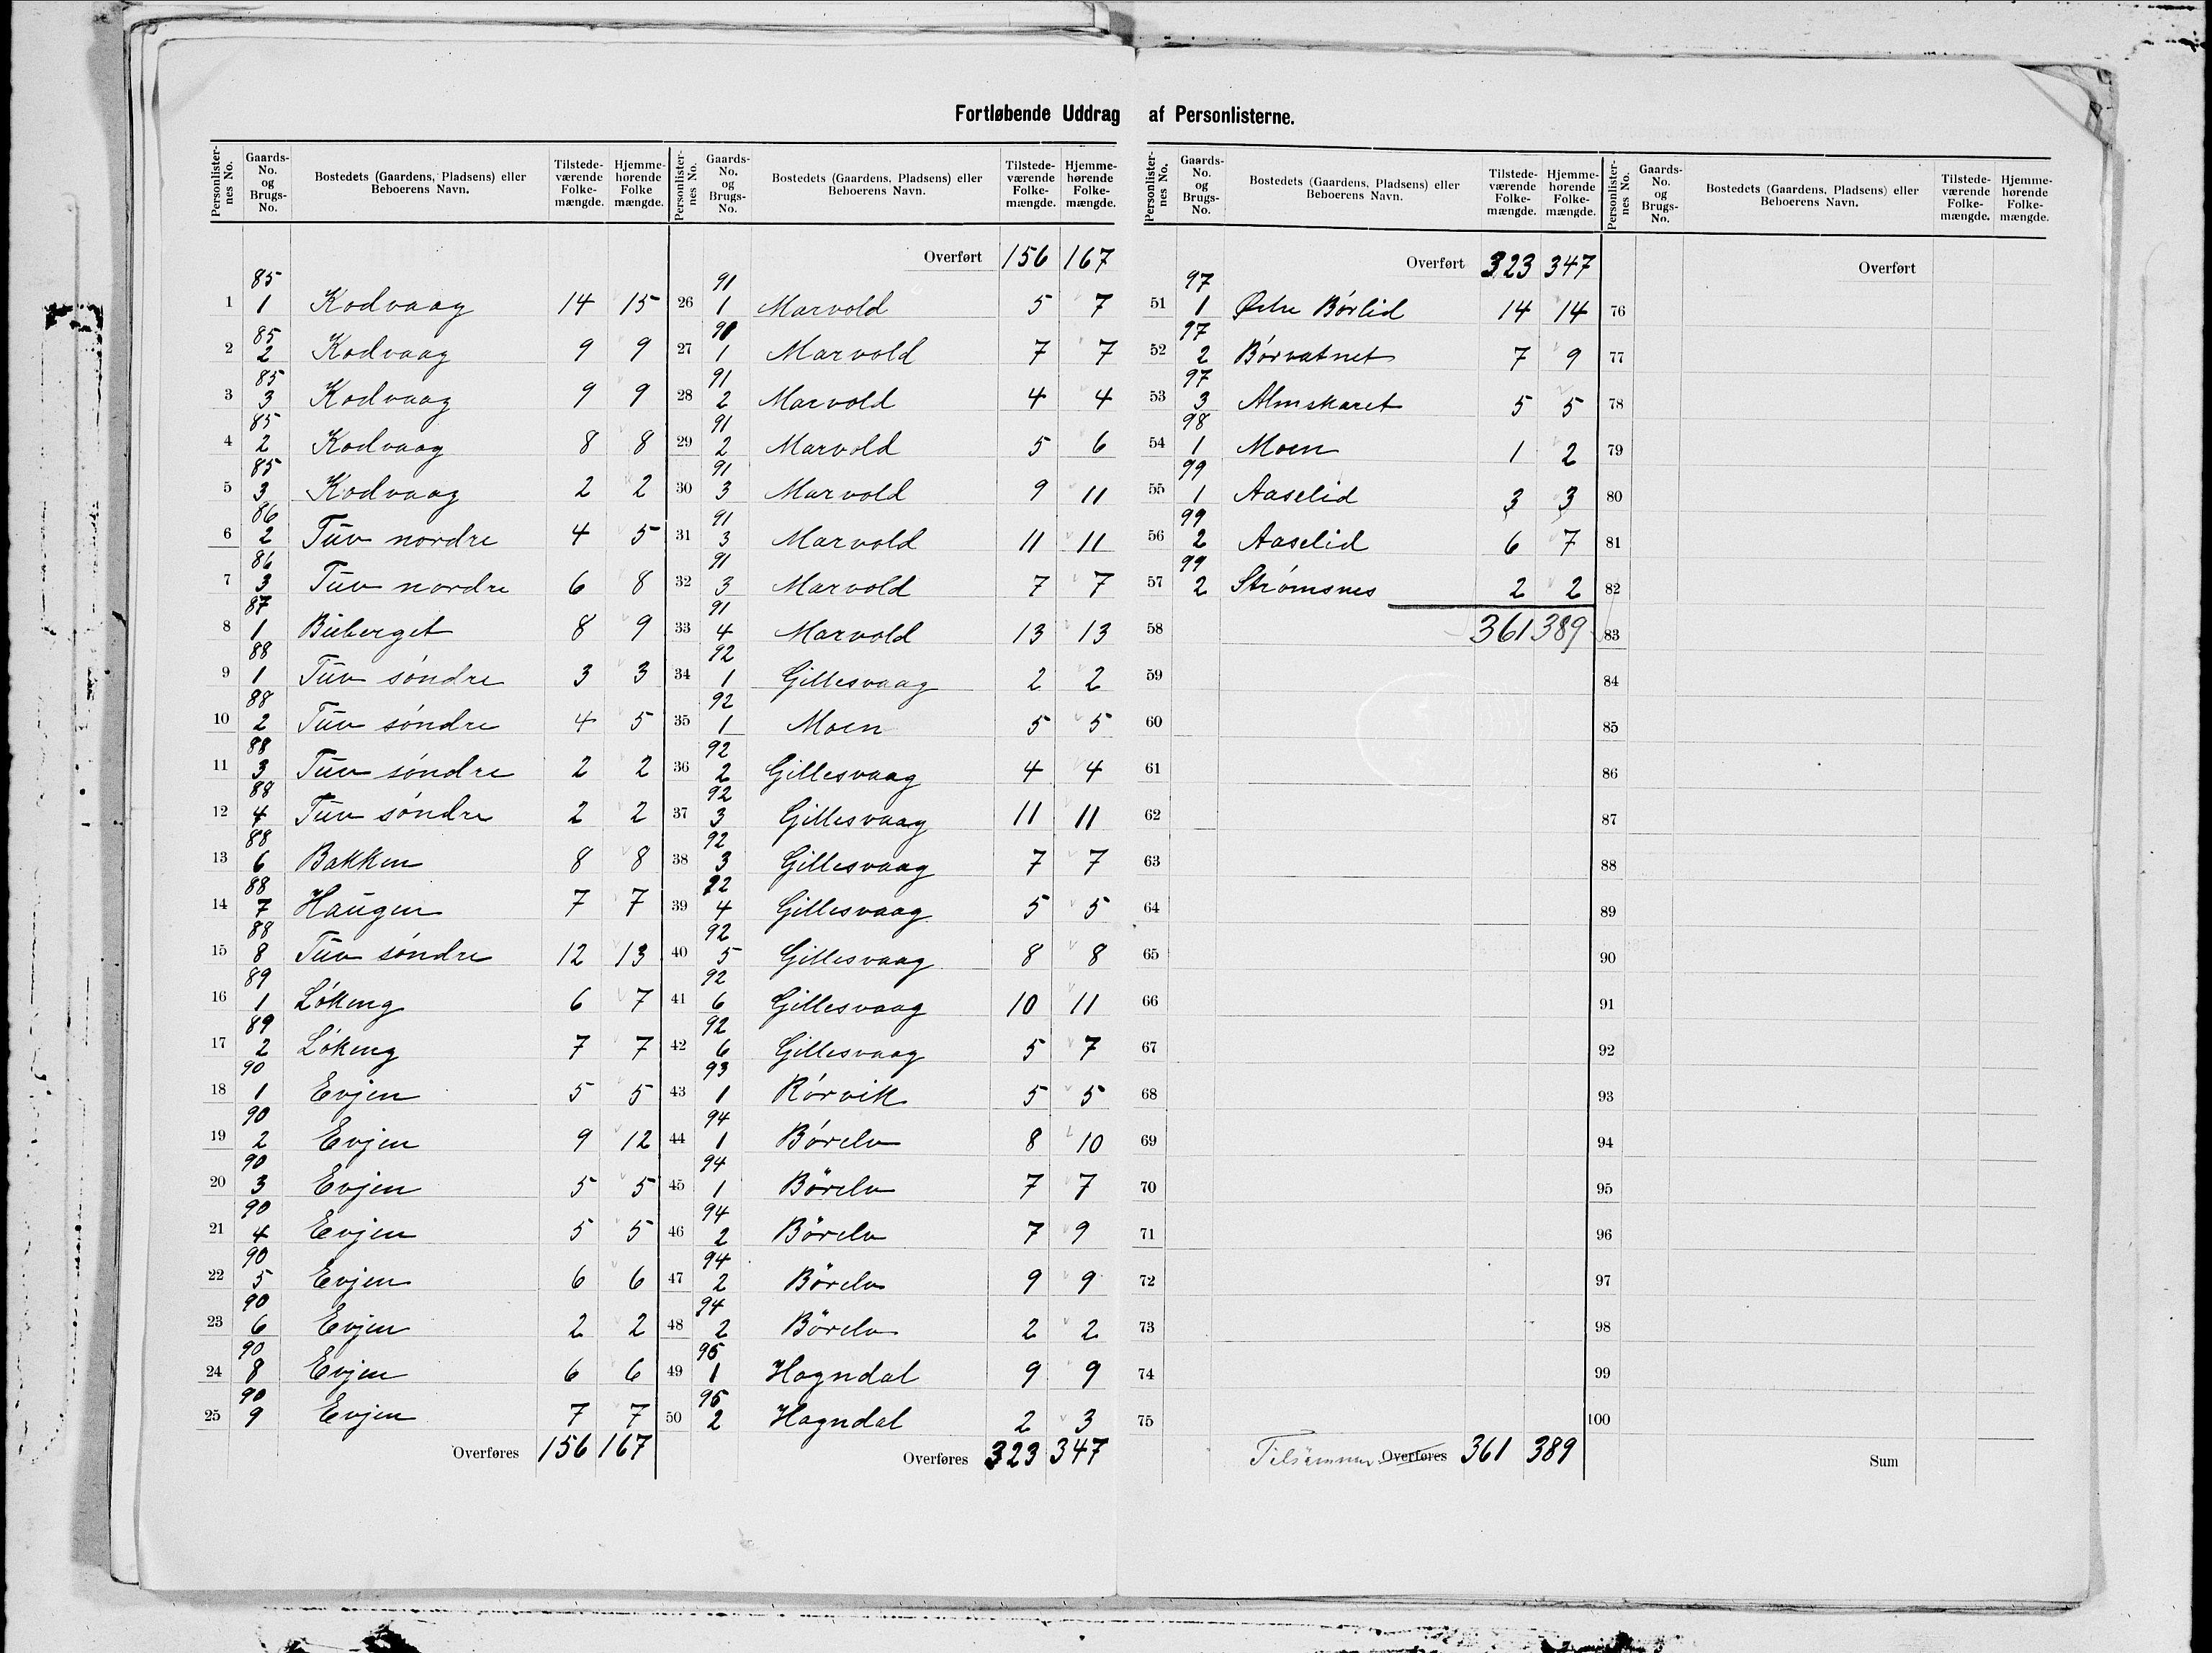 Fortløbende Uddrag af Personlisterne.
Personlister-nes No. | Gaards-No. og Brugs-No. | Bostedets (Gaardens, Pladsens) eller Beboerens Navn. | Tilstede-værende Folke-mængde. | Hjemme-hørende Folke mængde.
1 85 1 Kodvaag 14 15
2 85 2 Kodvaag 9 9
3 85 3 Kodvaag 9 9
4 85 2 Kodvaag 8 8
5 85 3 Kodvaag 2 2
6 86 2 Tuv nordre 4 5
7 86 3 Tuv nordre 6 8
8 87 1 Bieberget 8 9
9 88 1 Tuv søndre 3 3
10 88 2 Tuv søndre 4 5
11 88 3 Tuv søndre 2 2
12 88 4 Tuv søndre 2 2
13 88 6 Bakken 8 8
14 88 7 Haugen 7 7
15 88 8 Tuv søndre 12 13
16 89 1 Løkeng 6 7
17 89 2 Løkeng 7 7
18 90 1 Evjen 5 5
19 90 2 Evjen 9 12
20 90 3 Evjen 5 5
21 90 4 Evjen 5 5
22 90 5 Evjen 6 6
23 90 6 Evjen 2 2
24 90 8 Evjen 6 6
25 90 9 Evjen 7 7
Overføres 156 167
Personlister-nes No. | Gaards-No. og Brugs-No. | Bostedets (Gaardens, Pladsens) eller Beboerens Navn. | Tilstede-værende Folke-mængde. | Hjemme-hørende Folke-mængde.
Overført 156 167
26 91 1 Marvold 5 7
27 91 1 Marvold 7 7
28 91 2 Marvold 4 4
29 91 2 Marvold 5 6
30 91 3 Marvold 9 11
31 91 3 Marvold 11 11
32 91 3 Marvold 7 7
33 91 4 Marvold 13 13
34 92 1 Gillesvaag 2 2
35 92 1 Moen 5 5
36 92 2 Gillesvaag 4 4
37 92 3 Gillesvaag 11 11
38 92 3 Gillesvaag 7 7
39 92 4 Gillesvaag 5 5
40 92 5 Gillesvaag 8 8
41 92 6 Gillesvaag 10 11
42 92 6 Gillesvaag 5 7
43 93 1 Rørvik 5 5
44 94 1 Børelv 8 10
45 94 1 Börelv 7 7
46 94 2 Börelv 7 9
47 94 2 Börelv 9 9
48 94 2 Börelv 2 2
49 95 1 Hogndal 9 9
50 95 2 Hogndal 2 3
Overføres 323 347
Personlister-nes No. | Gaards-No. og Brugs-No. | Bostedets (Gaardens, Pladsens) eller Beboerens Navn. | Tilstede-værende Folke-mængde. | Hjemme-hørende Folke-mængde.
Overført 323 347
51 97 1 Børlid 14 14
52 97 2 Børvatnet 7 9
53 97 3 Almskaret 5 5
54 98 1 Moen 1 2
55 99 1 Aaselid 3 3
56 99 2 Aaselid 6 7
57 99 2 Strømsnes 2 2
58 361 389
59
60
61
62
63
64
65
66
67
68
69
70
71
72
73
74
75
Tilsammen Overføres 361 389
Personlister-nes No. | Gaards-No. og Brugs-No. | Bostedets (Gaardens, Pladsens) eller Beboerens Navn. | Tilstede-værende Folke-mængde. | Hjemme-hørende Folke-mængde.
Overført
76
77
78
79
80
81
82
83
84
85
86
87
88
89
90
91
92
93
94
95
96
97
98
99
100
Sum